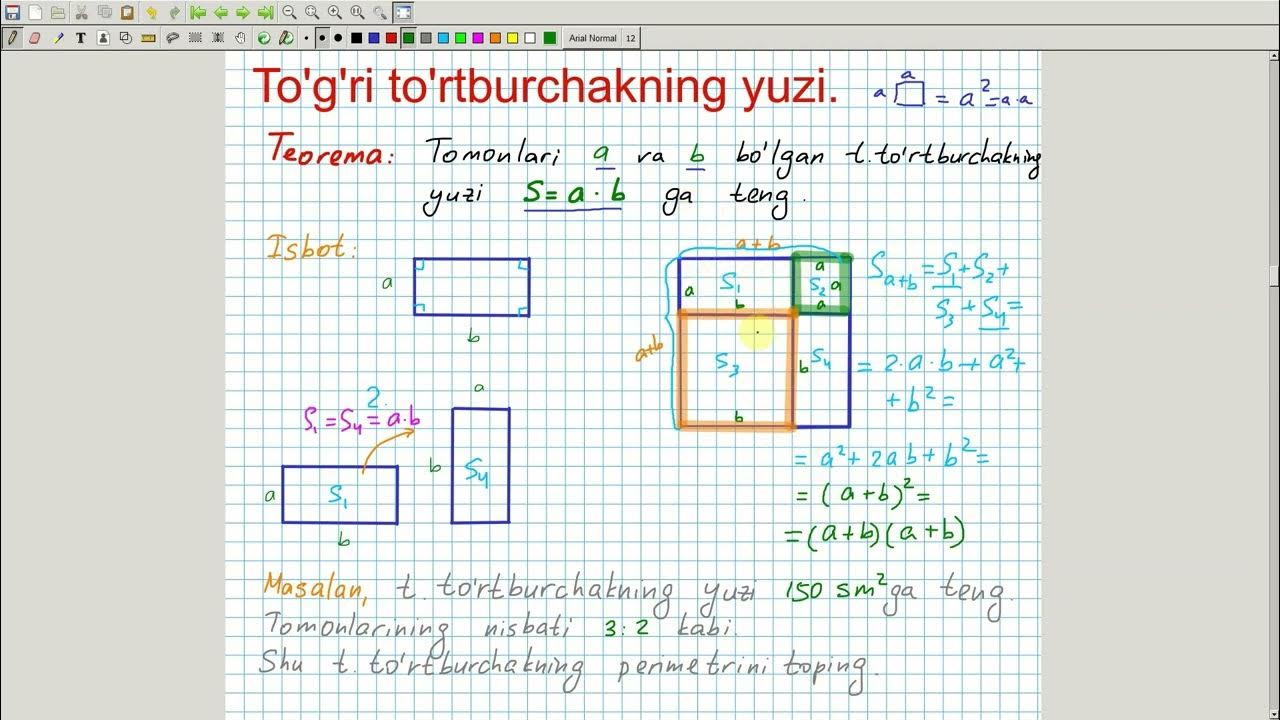 Arial Normal 12
To'g'ri to'rtburchakning yuzi.
a
a = a² = a·a
Teorema: Tomonlari a va b bo'lgan t.to'rtburchakning
yuzi S = a · b ga teng.
Isbot:
a
b
a
2·
S₁ = S₄ = a·b
a S₁
b
b S₄
a+b
a+b
a S₁ b
a S₂ a a
S₃ b
b S₄
Sa+b = S₁ + S₂ +
S₃ + S₄ =
= 2·a·b + a² +
+ b² =
= a² + 2ab + b² =
= (a+b)² =
= (a+b)(a+b)
Masalan, t. to'rtburchakning yuzi 150 sm² ga teng.
Tomonlarining nisbati 3:2 kabi.
Shu t. to'rtburchakning perimetrini toping.